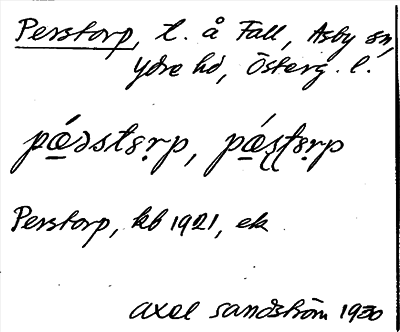 Perstorp, t. å Fall, Asby sn,
Ydre hd, Österg. l.
pǽ̱əstɛ̣rp, pǽ̱ʂʈɛ̣rp
Perstorp, kb 1921, ek
Axel Sandström 1930